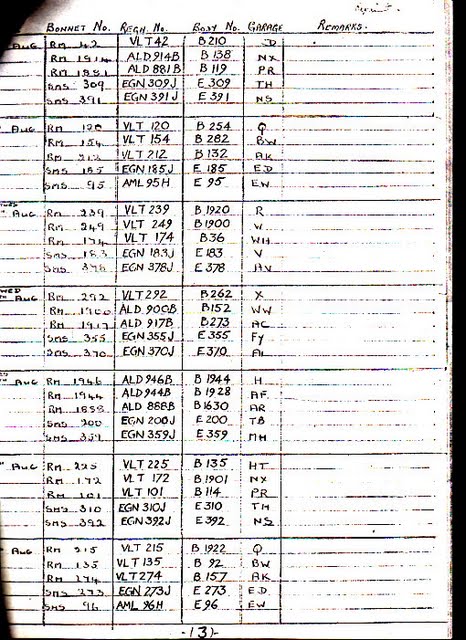 BONNET No. REGN. No. BODY No. GARAGE REMARKS.
AUG RM 42 VLT 42 B210 D
RM 1914 ALD 914B B 138 NX
RM 1881 ALD 881B B 119 PR
SMS 309 EGN 309J E 309 TH
SMS 391 EGN 391J E 391 NS
AUG RM 120 VLT 120 B 254 Q
RM 154 VLT 154 B 282 BW
RM 212 VLT 212 B 132 AK
SMS 185 EGN 185J E 185 ED
SMS 95 AML 95H E 95 EW
AUG RM 239 VLT 239 B 1920 R
RM 249 VLT 249 B 1900 W
RM 174 VLT 174 B36 WH
SMS 183 EGN 183J E183 V
SMS 378 EGN 378J E 378 AV
WED
AUG RM 292 VLT 292 B262 X
RM 1900 ALD 900B B152 WW
RM 1917 ALD 917B B273 AC
SMS 355 EGN 355J E 355 FY
SMS 370 EGN 370J E370 AL
AUG RM 1946 ALD 946B B 1944 H
RM 1944 ALD 944B B 1928 AF
RM 1888 ALD 888B B1630 AR
SMS 200 EGN 200J E 200 TB
SMS 359 EGN 359J E 359 MH
AUG RM 225 VLT 225 B 135 HT
RM 172 VLT 172 B1901 NX
RM 101 VLT 101 B 114 PR
SMS 310 EGN 310J E 310 TH
SMS 392 EGN 392J E392 NS
AUG RM 215 VLT 215 B 1922 Q
RM 135 VLT 135 B 92 BW
RM 274 VLT 274 B 157 AK
SMS 273 EGN 273J E 273 ED
SMS 96 AML 96H E96 EW
-13-